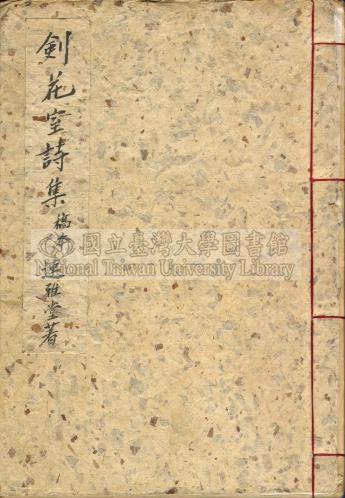 劍花室詩集 稿本 連雅堂著
國立臺灣大學圖書館
National Taiwan University Library